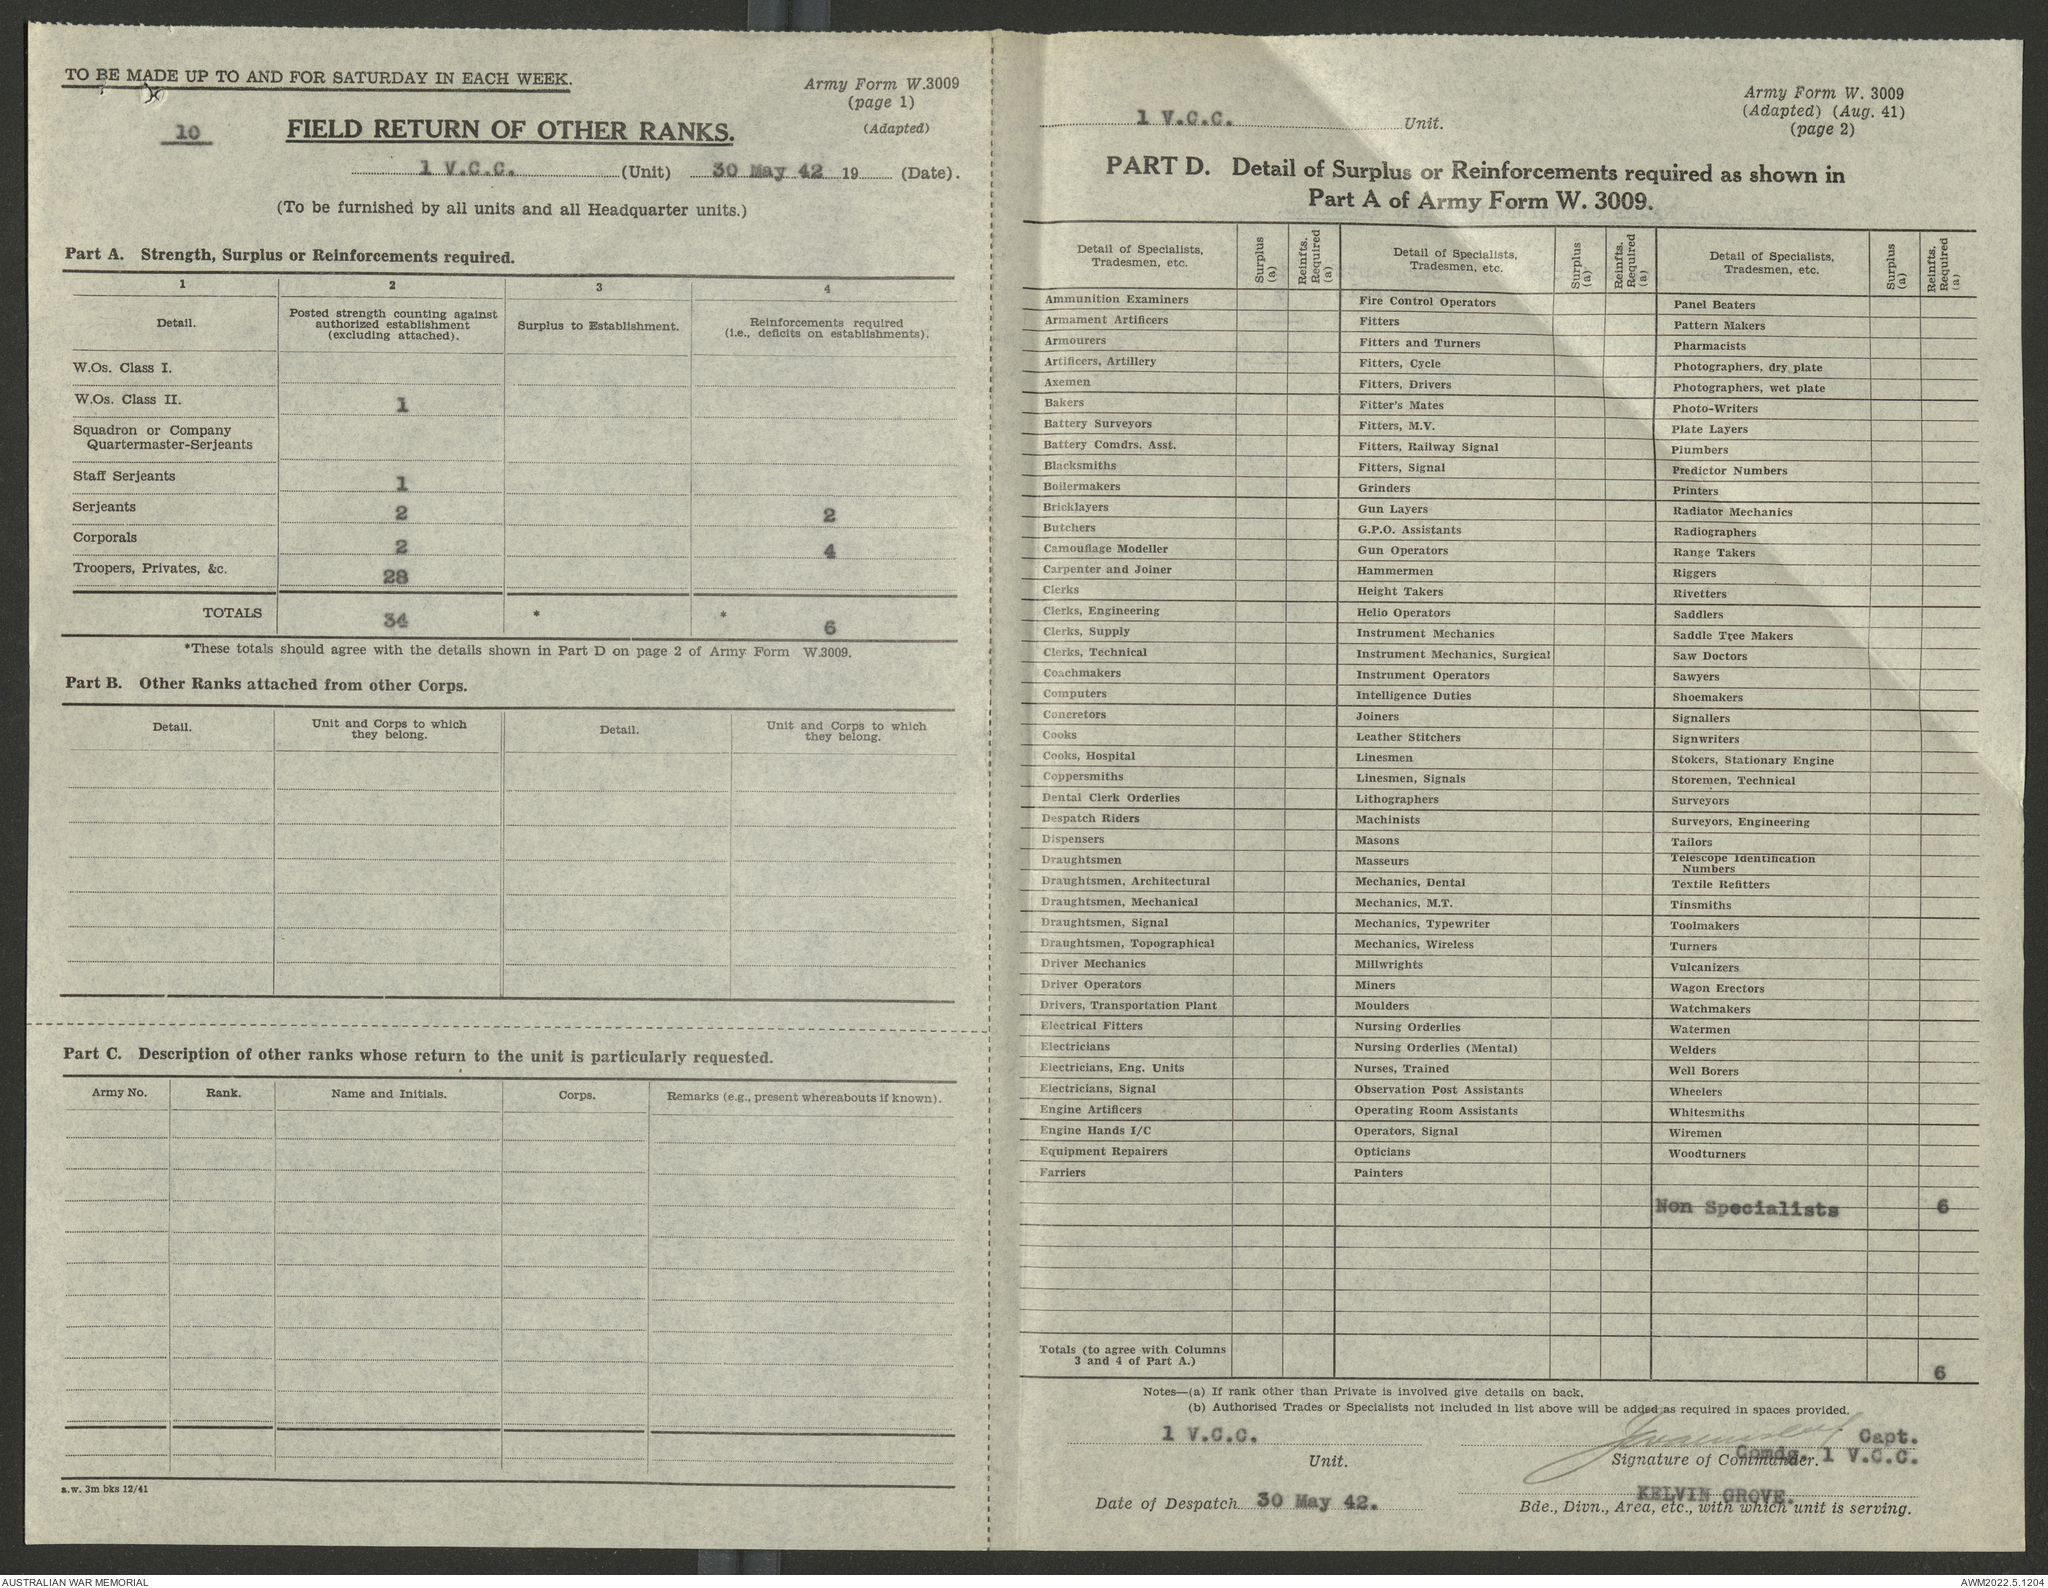 TO BE MADE UP TO AND FOR SATURDAY IN EACH WEEK.
Army Form W.3009
(page 1)
(Adapted)
10
FIELD RETURN OF OTHER RANKS.
1 V.C.C. (Unit) 30 May 42 19 (Date).
(To be furnished by all units and all Headquarter units.)
Part A. Strength, Surplus or Reinforcements required.
1 2 3 4
Detail. Posted strength counting against authorized establishment (excluding attached). Surplus to Establishment. Reinforcements required (i.e., deficits on establishments).
W.Os. Class I.
W.Os. Class II. 1
Squadron or Company
Quartermaster-Serjeants
Staff Serjeants 1
Serjeants 2 2
Corporals 2 4
Troopers, Privates, &c. 28
TOTALS 34 * * 6
*These totals should agree with the details shown in Part D on page 2 of Army Form W.3009.
Part B. Other Ranks attached from other Corps.
Detail. Unit and Corps to which they belong. Detail. Unit and Corps to which they belong.
Part C. Description of other ranks whose return to the unit is particularly requested.
Army No. Rank. Name and Initials. Corps. Remarks (e.g., present whereabouts if known).
a.w. 3m bks 12/41
Army Form W. 3009
(Adapted) (Aug. 41)
(page 2)
1 V.C.C. Unit.
PART D. Detail of Surplus or Reinforcements required as shown in
Part A of Army Form W. 3009.
Detail of Specialists, Tradesmen, etc. Surplus (a) Reinfts. Required (a) Detail of Specialists, Tradesmen, etc. Surplus (a) Reinfts. Required (a) Detail of Specialists, Tradesmen, etc. Surplus (a) Reinfts. Required (a)
Ammunition Examiners Fire Control Operators Panel Beaters
Armament Artificers Fitters Pattern Makers
Armourers Fitters and Turners Pharmacists
Artificers, Artillery Fitters, Cycle Photographers, dry plate
Axemen Fitters, Drivers Photographers, wet plate
Bakers Fitter's Mates Photo-Writers
Battery Surveyors Fitters, M.V. Plate Layers
Battery Comdrs. Asst. Fitters, Railway Signal Plumbers
Blacksmiths Fitters, Signal Predictor Numbers
Boilermakers Grinders Printers
Bricklayers Gun Layers Radiator Mechanics
Butchers G.P.O. Assistants Radiographers
Camouflage Modeller Gun Operators Range Takers
Carpenter and Joiner Hammermen Riggers
Clerks Height Takers Rivetters
Clerks, Engineering Helio Operators Saddlers
Clerks, Supply Instrument Mechanics Saddle Tree Makers
Clerks, Technical Instrument Mechanics, Surgical Saw Doctors
Coachmakers Instrument Operators Sawyers
Computers Intelligence Duties Shoemakers
Concretors Joiners Signallers
Cooks Leather Stitchers Signwriters
Cooks, Hospital Linesmen Stokers, Stationary Engine
Coppersmiths Linesmen, Signals Storemen, Technical
Dental Clerk Orderlies Lithographers Surveyors
Despatch Riders Machinists Surveyors, Engineering
Dispensers Masons Tailors
Draughtsmen Masseurs Telescope Identification Numbers
Draughtsmen, Architectural Mechanics, Dental Textile Refitters
Draughtsmen, Mechanical Mechanics, M.T. Tinsmiths
Draughtsmen, Signal Mechanics, Typewriter Toolmakers
Draughtsmen, Topographical Mechanics, Wireless Turners
Driver Mechanics Millwrights Vulcanizers
Driver Operators Miners Wagon Erectors
Drivers, Transportation Plant Moulders Watchmakers
Electrical Fitters Nursing Orderlies Watermen
Electricians Nursing Orderlies (Mental) Welders
Electricians, Eng. Units Nurses, Trained Well Borers
Electricians, Signal Observation Post Assistants Wheelers
Engine Artificers Operating Room Assistants Whitesmiths
Engine Hands I/C Operators, Signal Wiremen
Equipment Repairers Opticians Woodturners
Farriers Painters
Non Specialists 6
Totals (to agree with Columns
3 and 4 of Part A.) 6
Notes—(a) If rank other than Private is involved give details on back.
(b) Authorised Trades or Specialists not included in list above will be added as required in spaces provided.
1 V.C.C. Capt.
Unit. Signature of Commander. Comdg. 1 V.C.C.
Date of Despatch 30 May 42. KELVIN GROVE.
Bde., Divn., Area, etc., with which unit is serving.
AUSTRALIAN WAR MEMORIAL AWM2022.5.1204